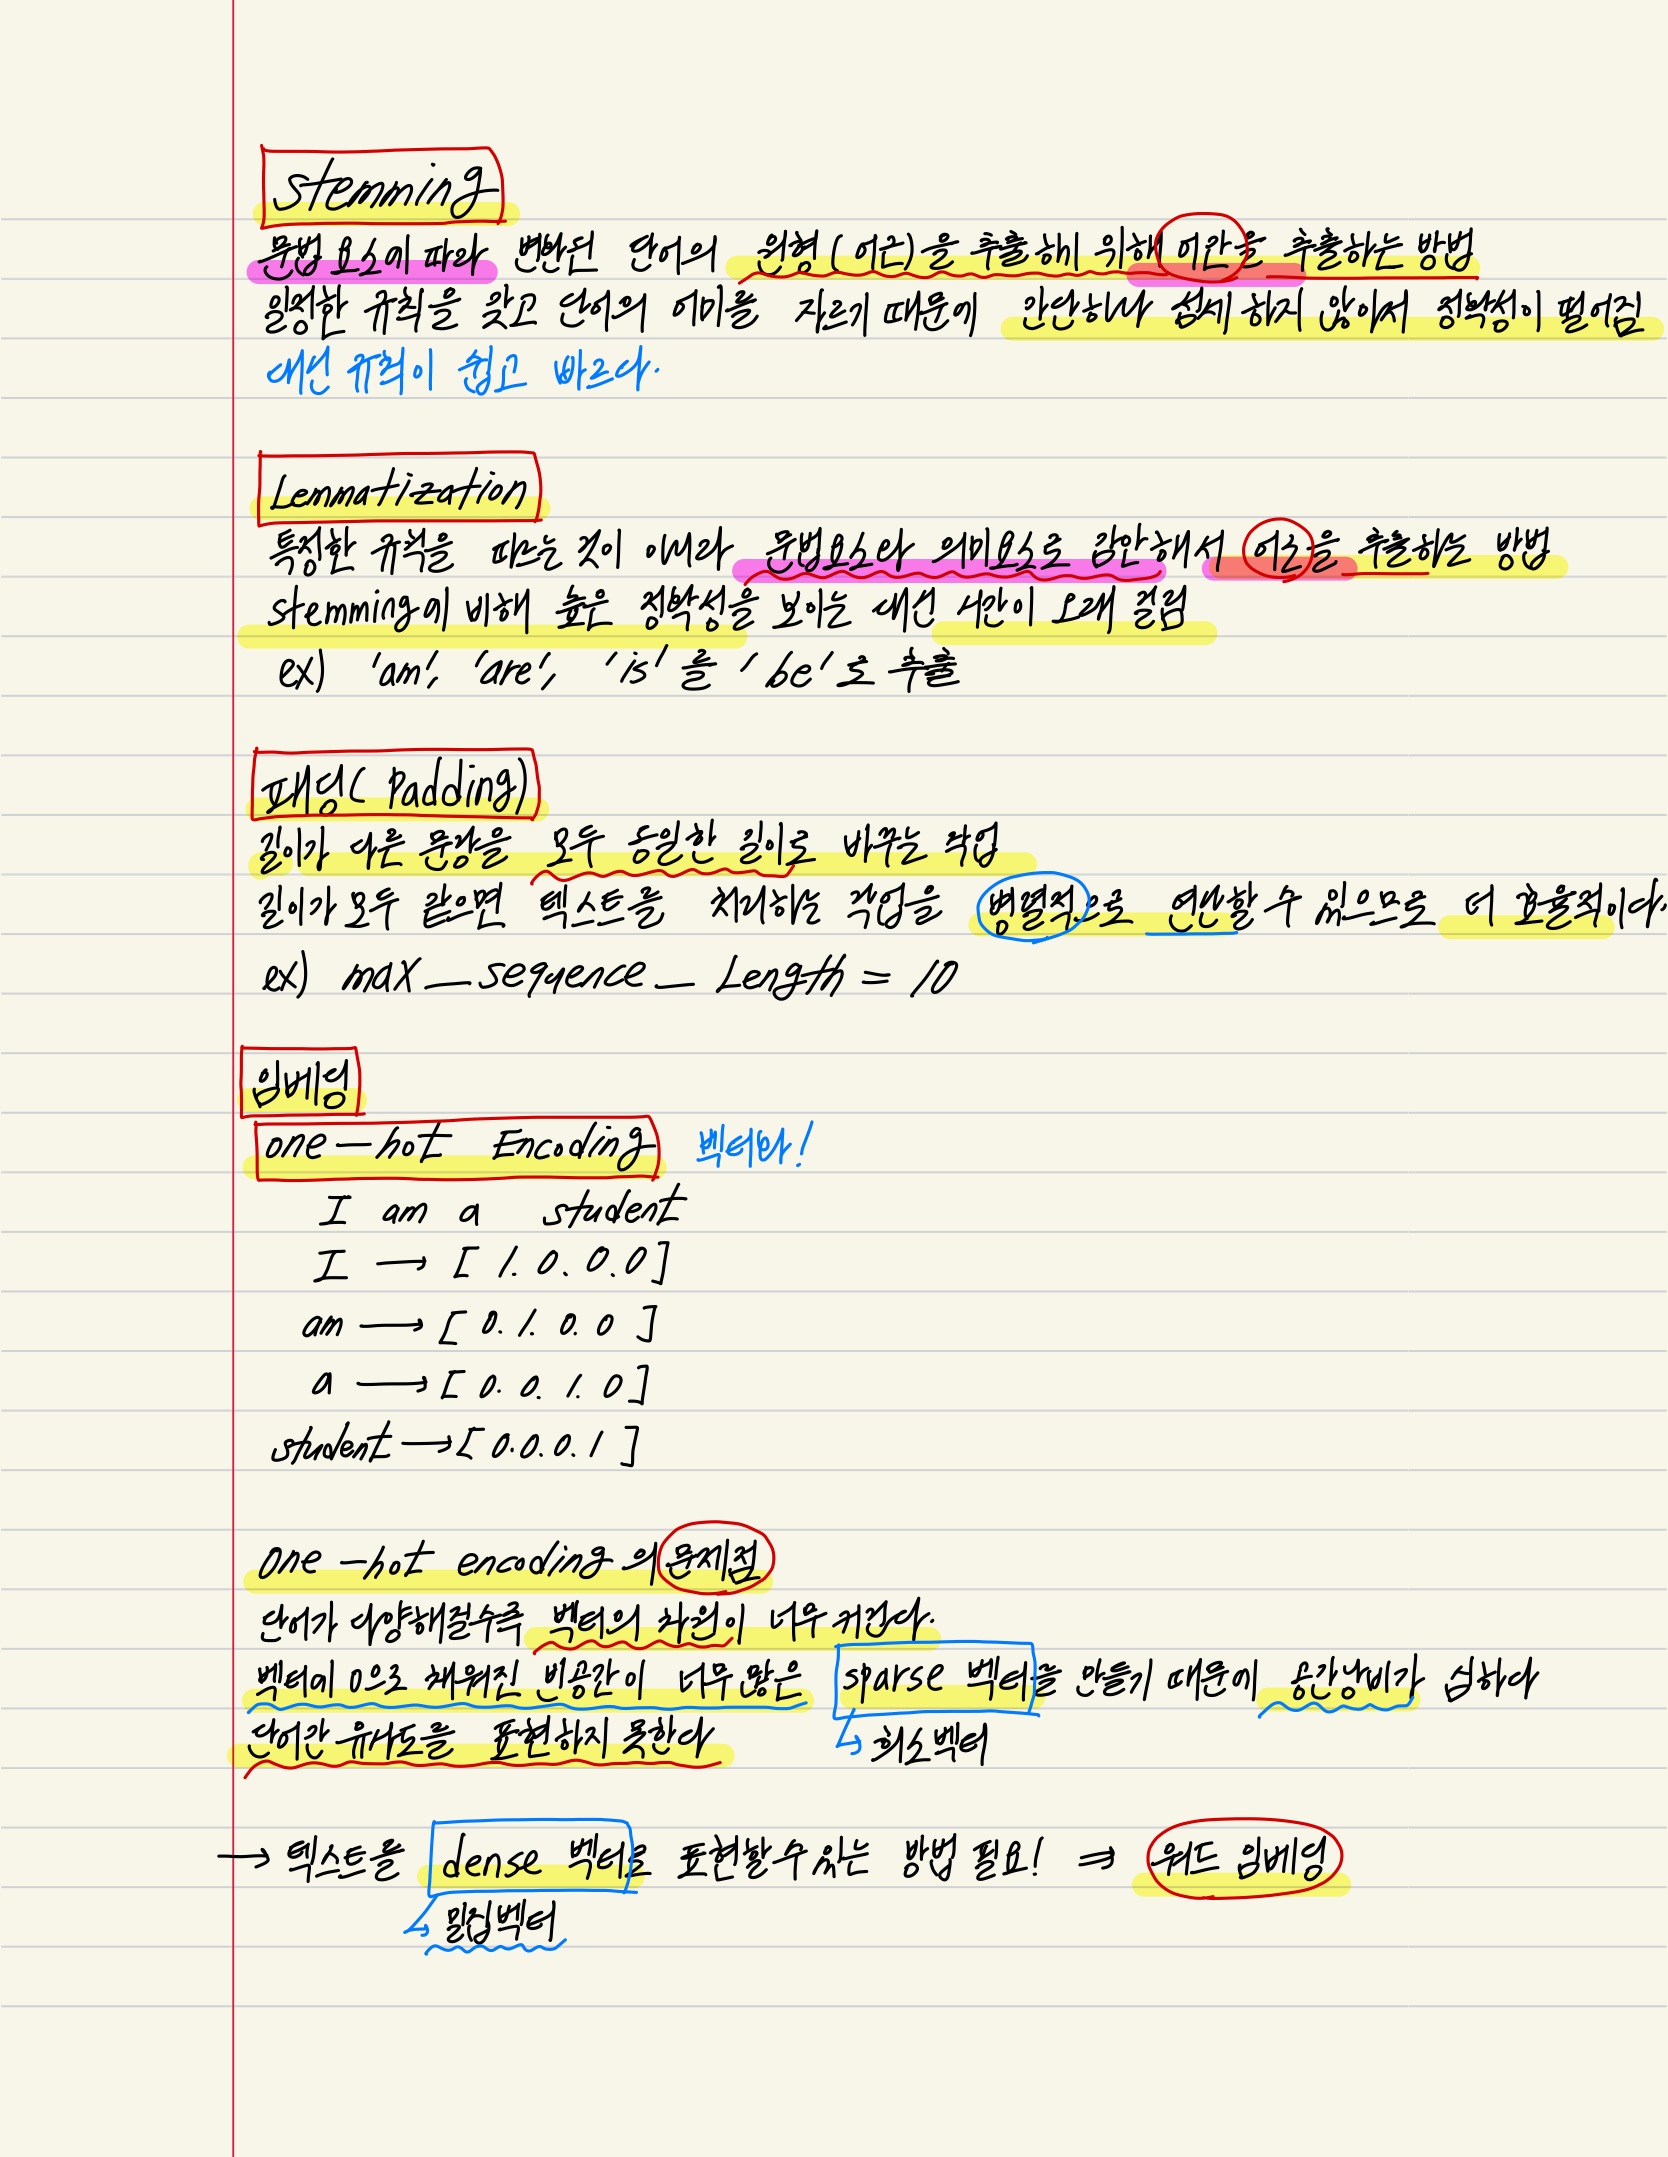 stemming
문법 요소에 따라 변환된 단어의 원형(어근)을 추출해기 위해 어간을 추출하는 방법
일정한 규칙을 맞고 단어의 어미를 자르기 때문에 간단하나 섬세 하지 않아서 정확성이 떨어짐
대신 규칙이 쉽고 빠르다.
Lemmatization
특정한 규칙을 따르는 것이 아니라 문법요소와 의미요소로 감안해서 어근을 추출하는 방법
stemming에 비해 높은 정확성을 보이는 대신 시간이 오래 걸림
ex) 'am', 'are', 'is'를 'be'로 추출
패딩( Padding)
길이가 다른 문장을 모두 동일한 길이로 바꾸는 작업
길이가 모두 같으면 텍스트를 처리하는 작업을 병렬적으로 연산할 수 있으므로 더 효율적이다.
ex) max_sequence_Length = 10
임베딩
one-hot Encoding 벡터화!
I am a student
I → [ 1. 0. 0. 0 ]
am → [ 0. 1. 0. 0 ]
a → [ 0. 0. 1. 0 ]
student → [ 0. 0. 0. 1 ]
one-hot encoding의 문제점
단어가 다양해질수록 벡터의 차원이 너무 커진다.
벡터에 0으로 채워진 빈공간이 너무 많은 sparse 벡터를 만들기 때문에 공간낭비가 심하다
↳ 희소벡터
단어간 유사도를 표현하지 못한다
→ 텍스트를 dense 벡터로 표현할 수 있는 방법 필요! ⇒ 워드 임베딩
↳ 밀집벡터